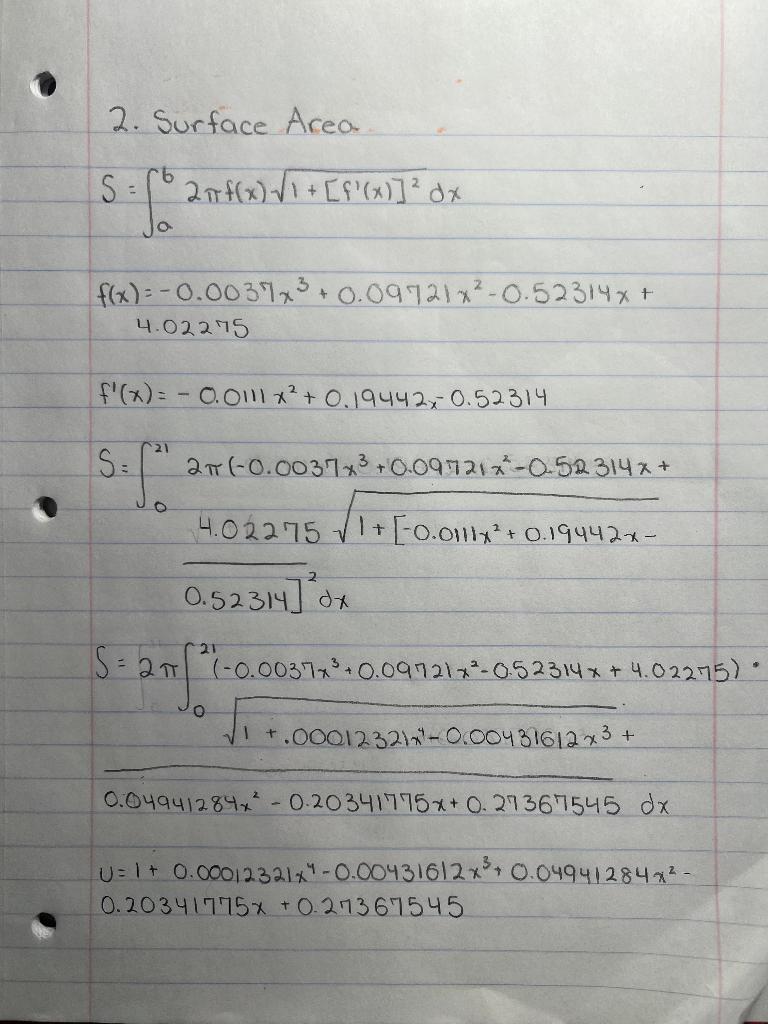 2. Surface Area
S = ∫ₐᵇ 2πf(x)√1+[f'(x)]² dx
f(x) = -0.0037x³ + 0.09721x² - 0.52314x +
4.02275
f'(x) = - 0.0111x² + 0.19442x - 0.52314
S = ∫₀²¹ 2π(-0.0037x³ + 0.09721x² - 0.52314x +
4.02275 √1+[-0.0111x² + 0.19442x -
0.52314]² dx
S = 2π∫₀²¹ (-0.0037x³ + 0.09721x² - 0.52314x + 4.02275) •
√1 + .00012321x⁴ - 0.00431612x³ +
0.04941284x² - 0.20341775x + 0.27367545 dx
U = 1 + 0.00012321x⁴ - 0.00431612x³ + 0.04941284x² -
0.20341775x + 0.27367545